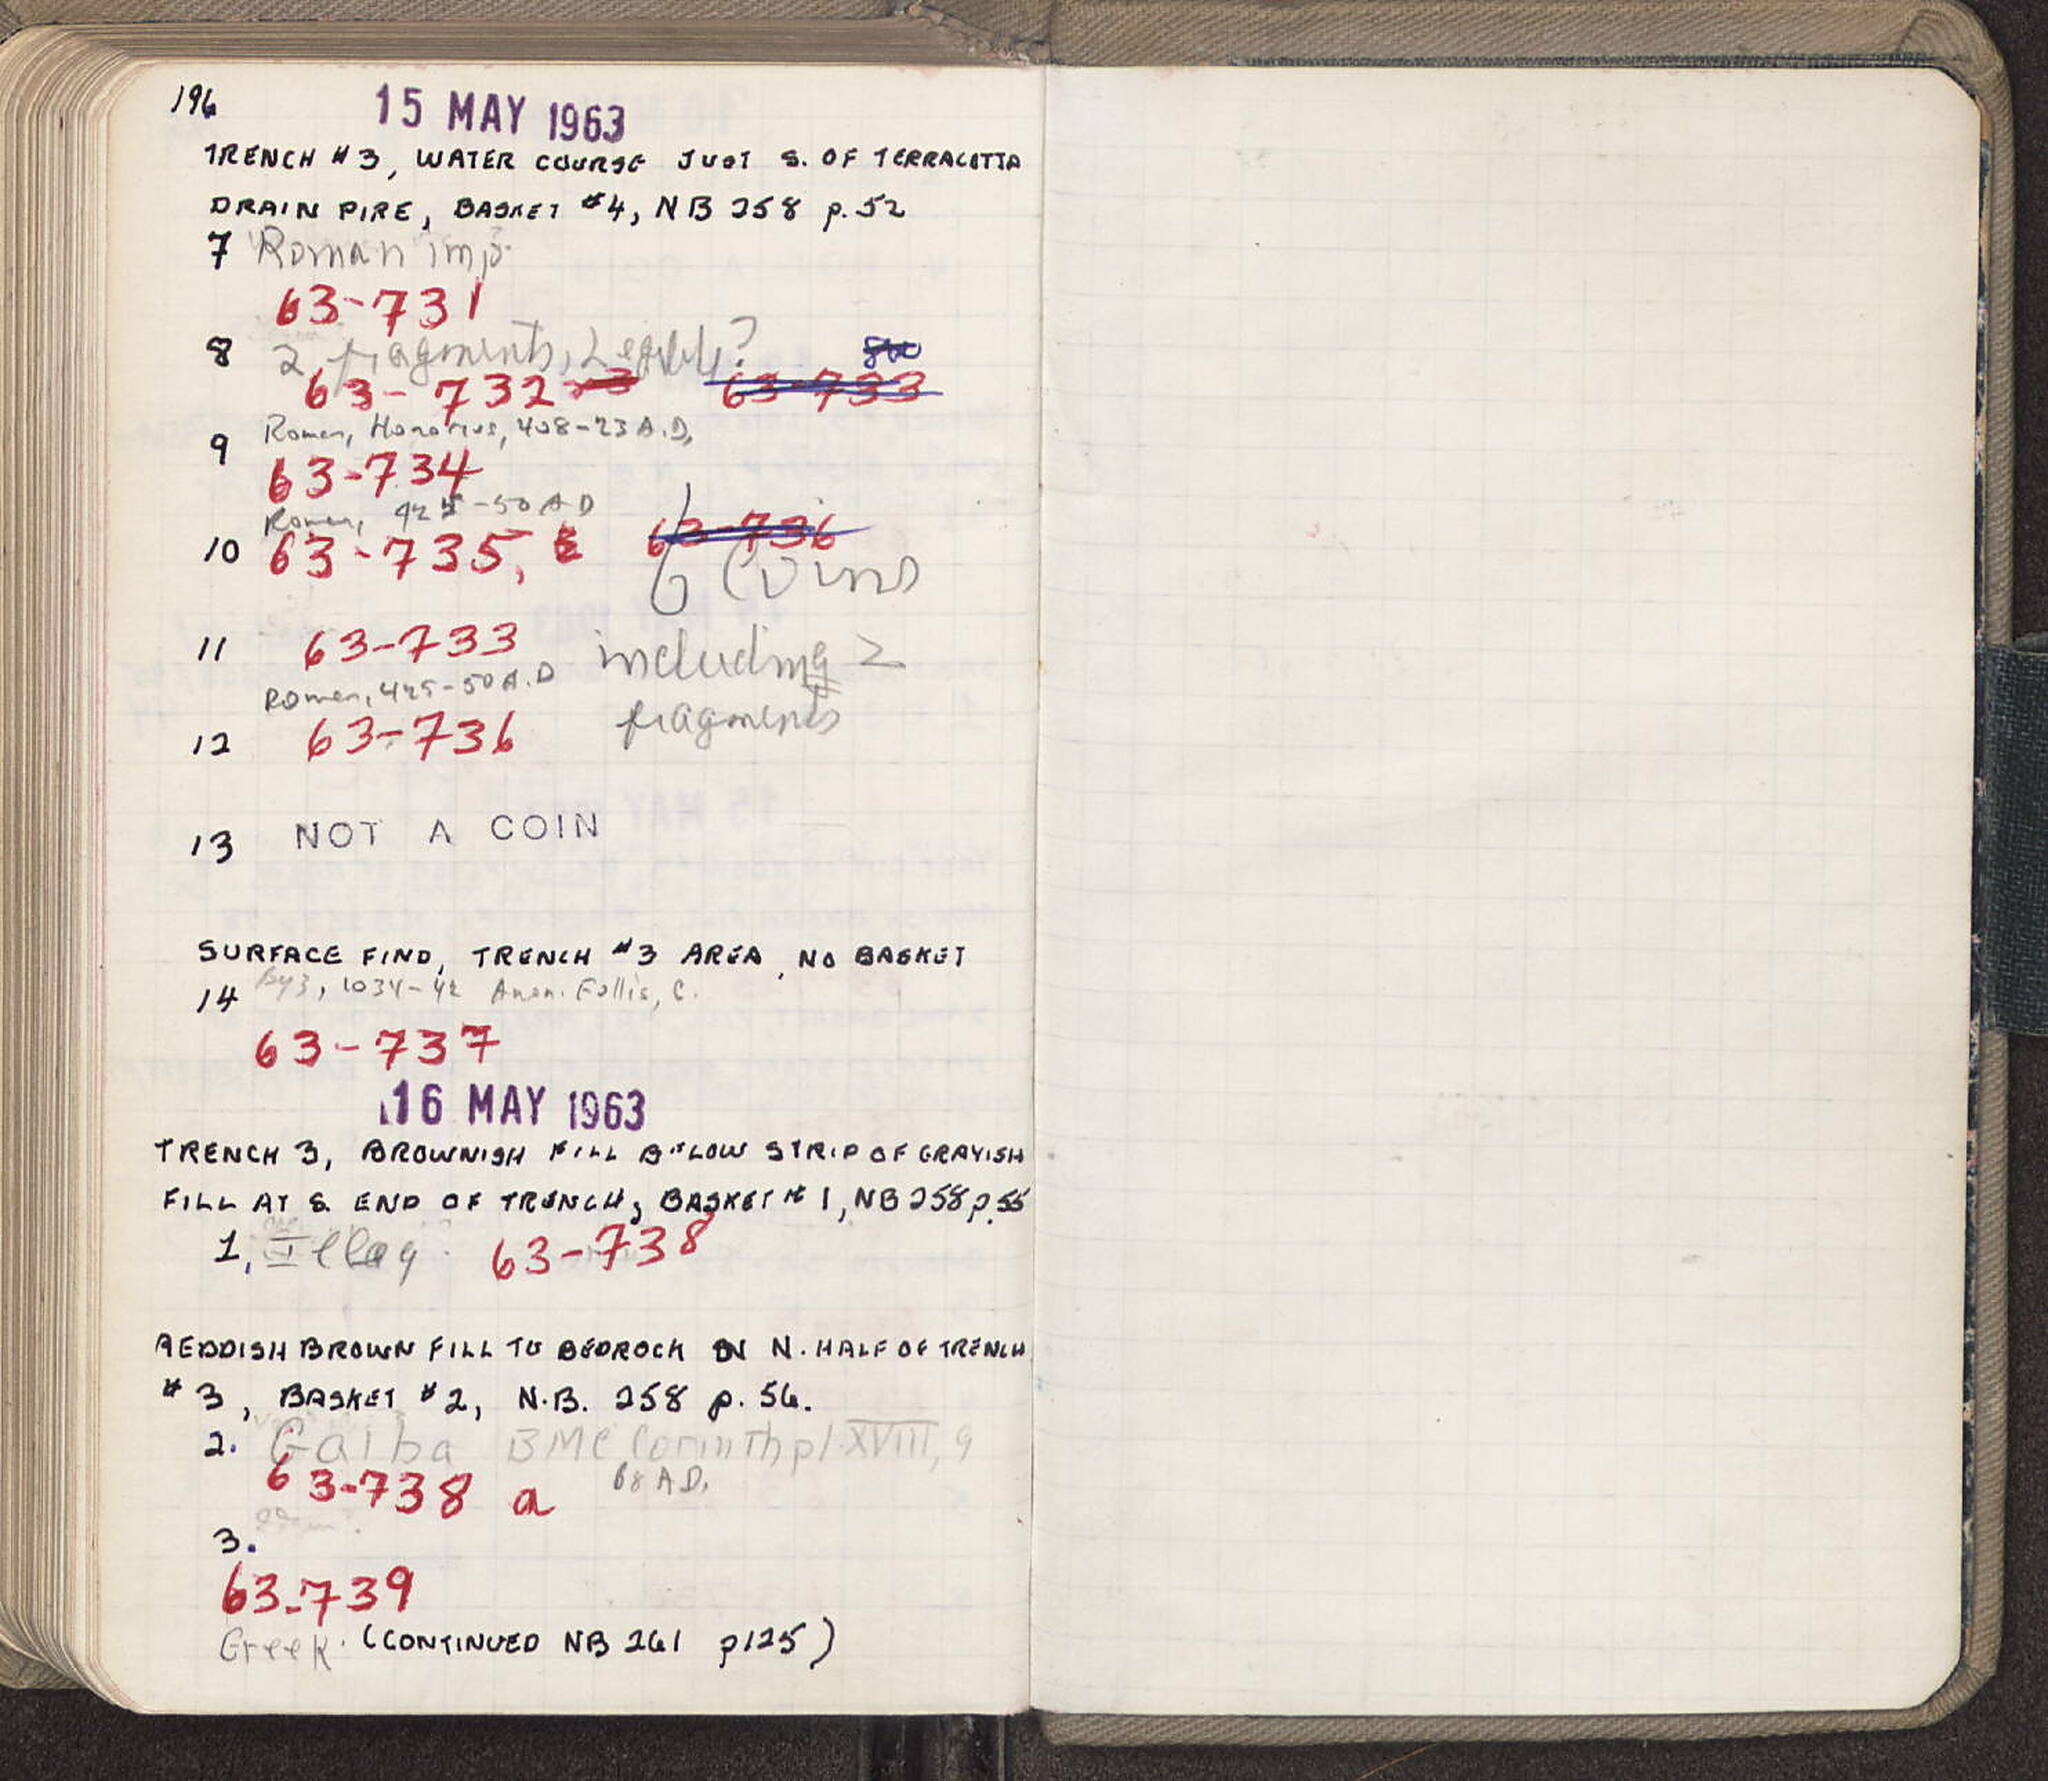 196
15 MAY 1963
TRENCH #3, WATER COURSE JUST S. OF TERRACOTTA
DRAIN PIPE, BASKET #4, NB 258 p. 52
7 Roman imp.
63-731
8 2 fragments, Legible?
63-732 63-733
Roman, Honorius, 408-23 A.D.
9 63-734
Roman, 425-50 A D
10 63-735, 63-736
6 Coins
11 63-733 including 2
Roman, 425-50 A.D fragments
12 63-736
13 NOT A COIN
SURFACE FIND, TRENCH #3 AREA, NO BASKET
14 Byz, 1034-42 Anon. Follis, C.
63-737
16 MAY 1963
TRENCH 3, BROWNISH FILL BELOW STRIP OF GRAYISH
FILL AT S. END OF TRENCH, BASKET #1, NB 258 p. 55
1. Illeg. 63-738
REDDISH BROWN FILL TO BEDROCK IN N. HALF OF TRENCH
#3, BASKET #2, N.B. 258 p. 56.
2. Galba BMC Corinth pl XVIII, 9
63-738 a 68 A D.
3.
63-739
Greek. (CONTINUED NB 261 p125)